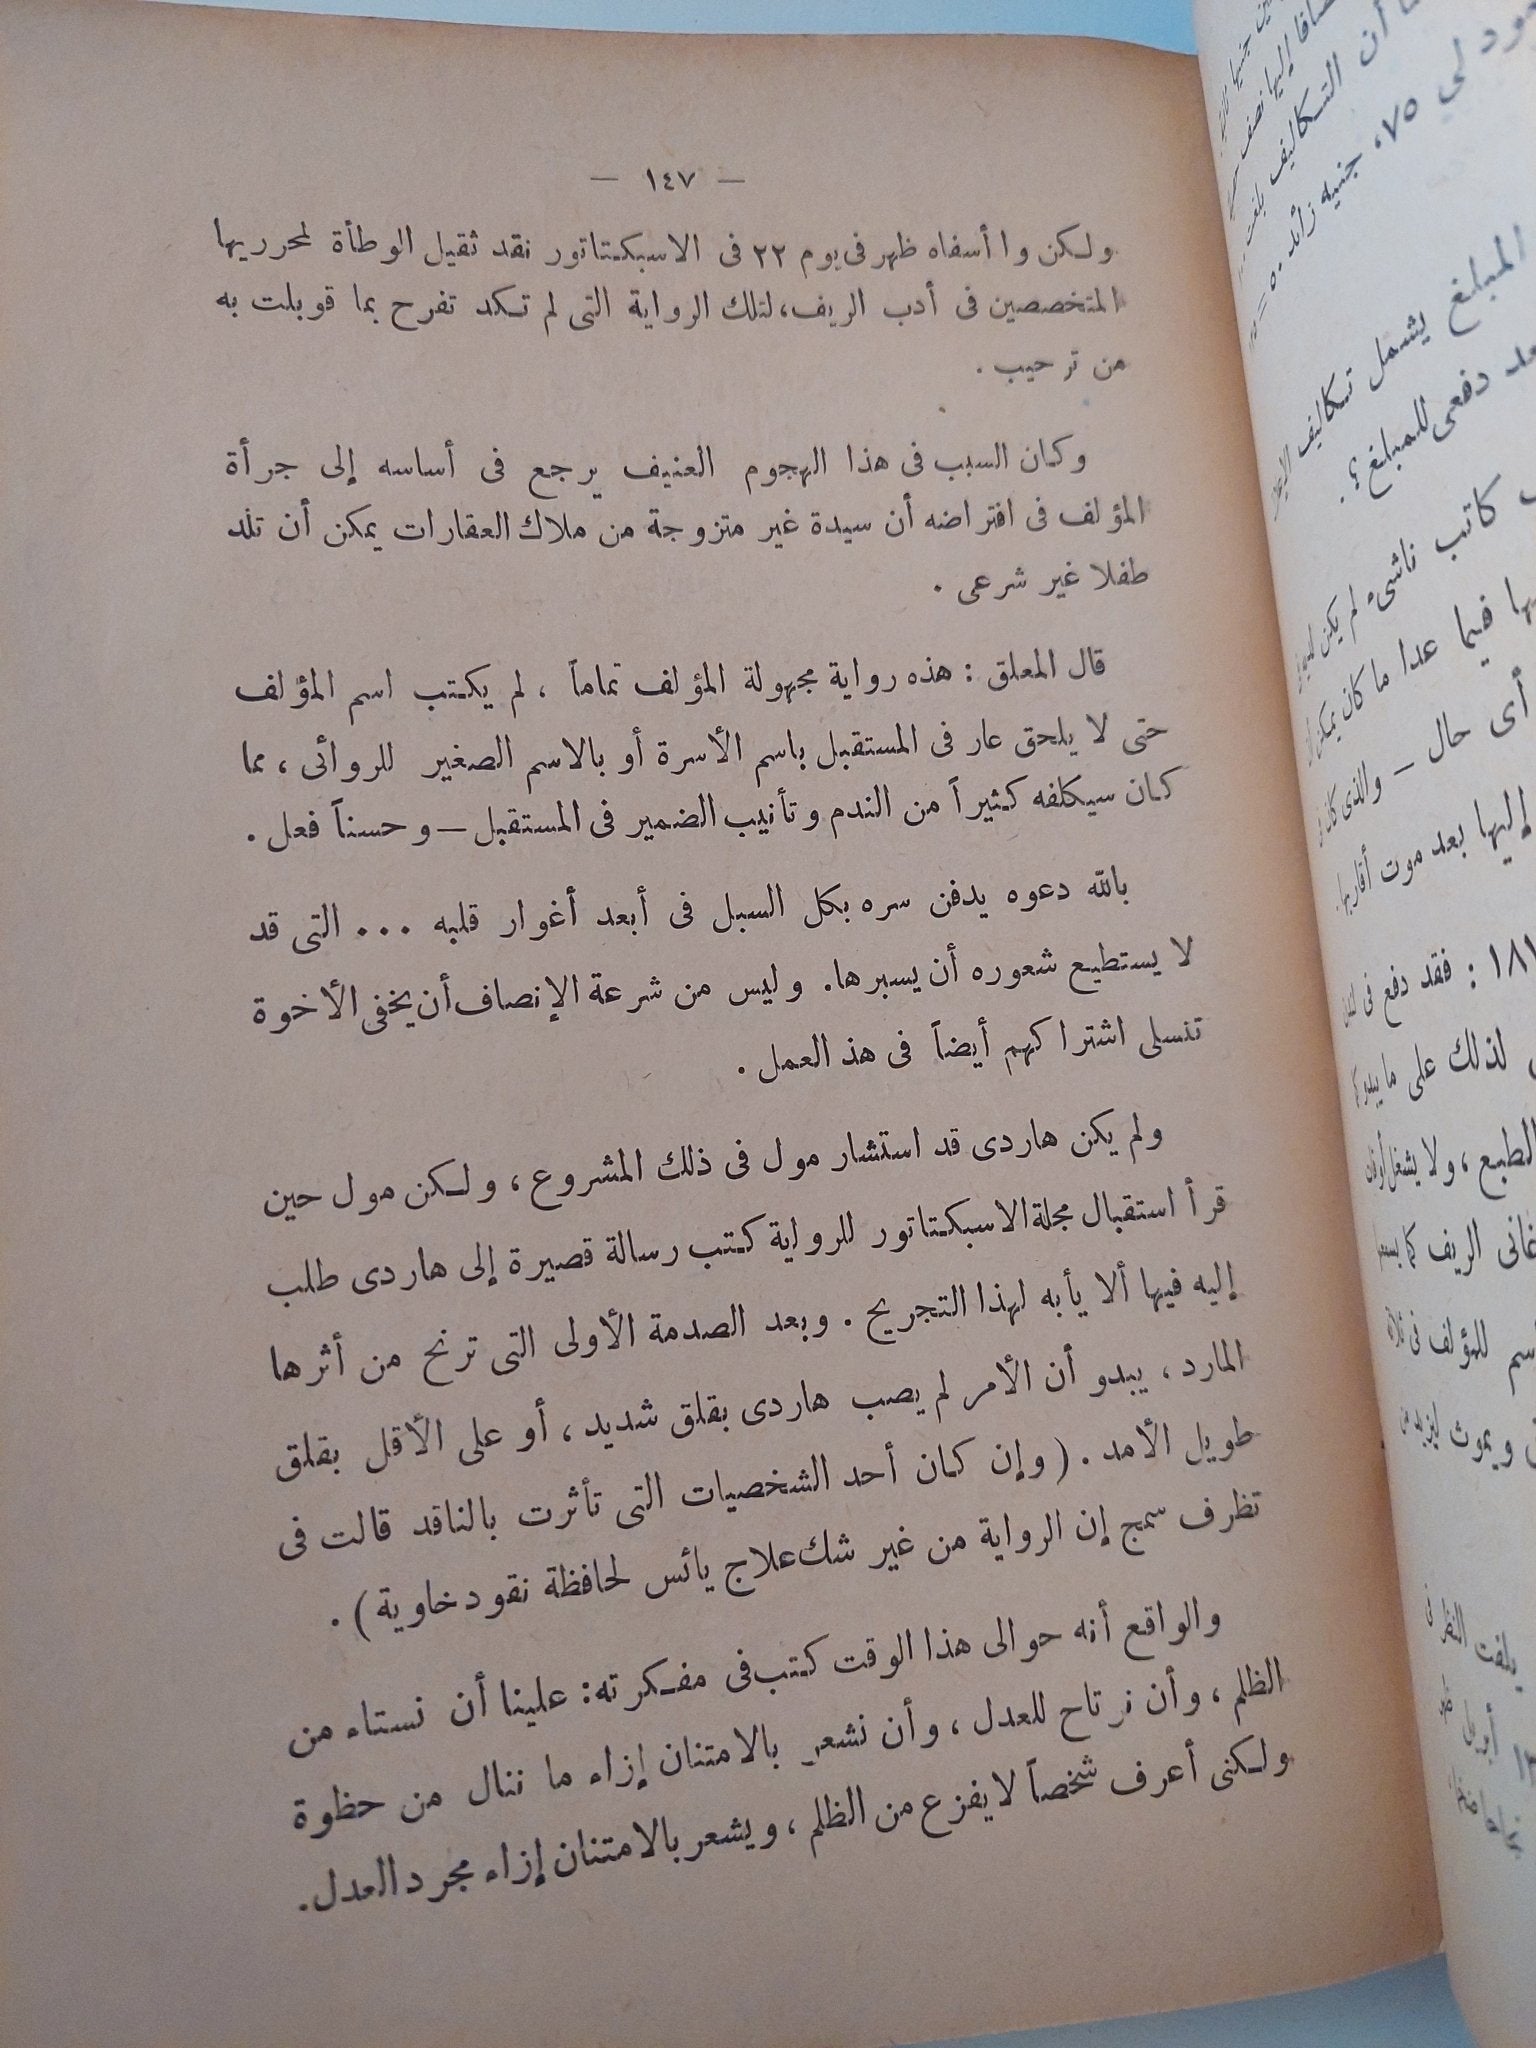 — ١٤٧ —
ولكن وا أسفاه ظهر فى يوم ٢٢ فى الاسبكتاتور نقد ثقيل الوطأة لمحرريها
المتخصصين فى أدب الريف، لتلك الرواية التى لم تكد تفرح بما قوبلت به
من ترحيب .
وكان السبب فى هذا الهجوم العنيف يرجع فى أساسه إلى جرأة
المؤلف فى افتراضه أن سيدة غير متزوجة من ملاك العقارات يمكن أن تلد
طفلا غير شرعى .
قال المعلق : هذه رواية مجهولة المؤلف تماماً ، لم يكتب اسم المؤلف
حتى لا يلحق عار فى المستقبل باسم الأسرة أو بالاسم الصغير للروائى ، مما
كان سيكلفه كثيراً من الندم وتأنيب الضمير فى المستقبل — وحسناً فعل .
بالله دعوه يدفن سره بكل السبل فى أبعد أغوار قلبه ... التى قد
لا يستطيع شعوره أن يسبرها. وليس من شرعة الإنصاف أن يخفى الأخوة
تنسلى اشتراكهم أيضاً فى هذ العمل .
ولم يكن هاردى قد استشار مول فى ذلك المشروع ، ولكن مول حين
قرأ استقبال مجلة الاسبكتاتور للرواية كتب رسالة قصيرة إلى هاردى طلب
إليه فيها ألا يأبه لهذا التجريح . وبعد الصدمة الأولى التى ترنح من أثرها
المارد ، يبدو أن الأمر لم يصب هاردى بقلق شديد ، أو على الأقل بقلق
طويل الأمد . ( وإن كان أحد الشخصيات التى تأثرت بالناقد قالت فى
تظرف سمج إن الرواية من غير شك علاج يائس لحافظة نقود خاوية ) .
والواقع أنه حوالى هذا الوقت كتب فى مفكرته: علينا أن نستاء من
الظلم ، وأن نرتاح للعدل ، وأن نشعر بالامتنان إزاء ما ننال من حظوة
ولكنى أعرف شخصاً لايفزع من الظلم ، ويشعر بالامتنان إزاء مجرد العدل.
أن التكاليف بلغت
لي ٧٥، جنيه زائد ٥٠ =
المبلغ يشمل تكاليف
دفعى للمبلغ ؟.
كاتب ناشىء لم يكن
فيما عدا ما كان يمكن
أى حال — والذى كان
إليها بعد موت أقاربها.
: فقد دفع فى
لذلك على ما يبدو
الطبع ، ولا يشغل
الريف كما
للمؤلف فى
ويموث ليزيد من
يلفت النظر